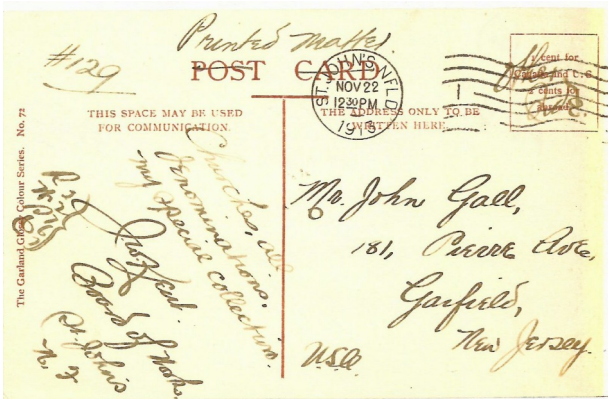 Printed Matter
#129
POST CARD
ST. JOHN'S NFLD
NOV 22
12 30 PM
1913
1 cent for
Canada and U.S.
2 cents for
abroad.
THIS SPACE MAY BE USED
FOR COMMUNICATION.
THE ADDRESS ONLY TO BE
WRITTEN HERE
The Garland Glossy Colour Series. No. 72
Churches, all
denominations,
my special collection.
Board of Works,
St. John's
N. F
Mr. John Gall,
181, Pierre Ave,
Garfield,
New Jersey.
USA